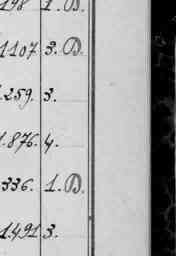 198 1. D.
1107 3. D.
259. 3.
1.876. 4.
336. 1. D.
1.491 3.